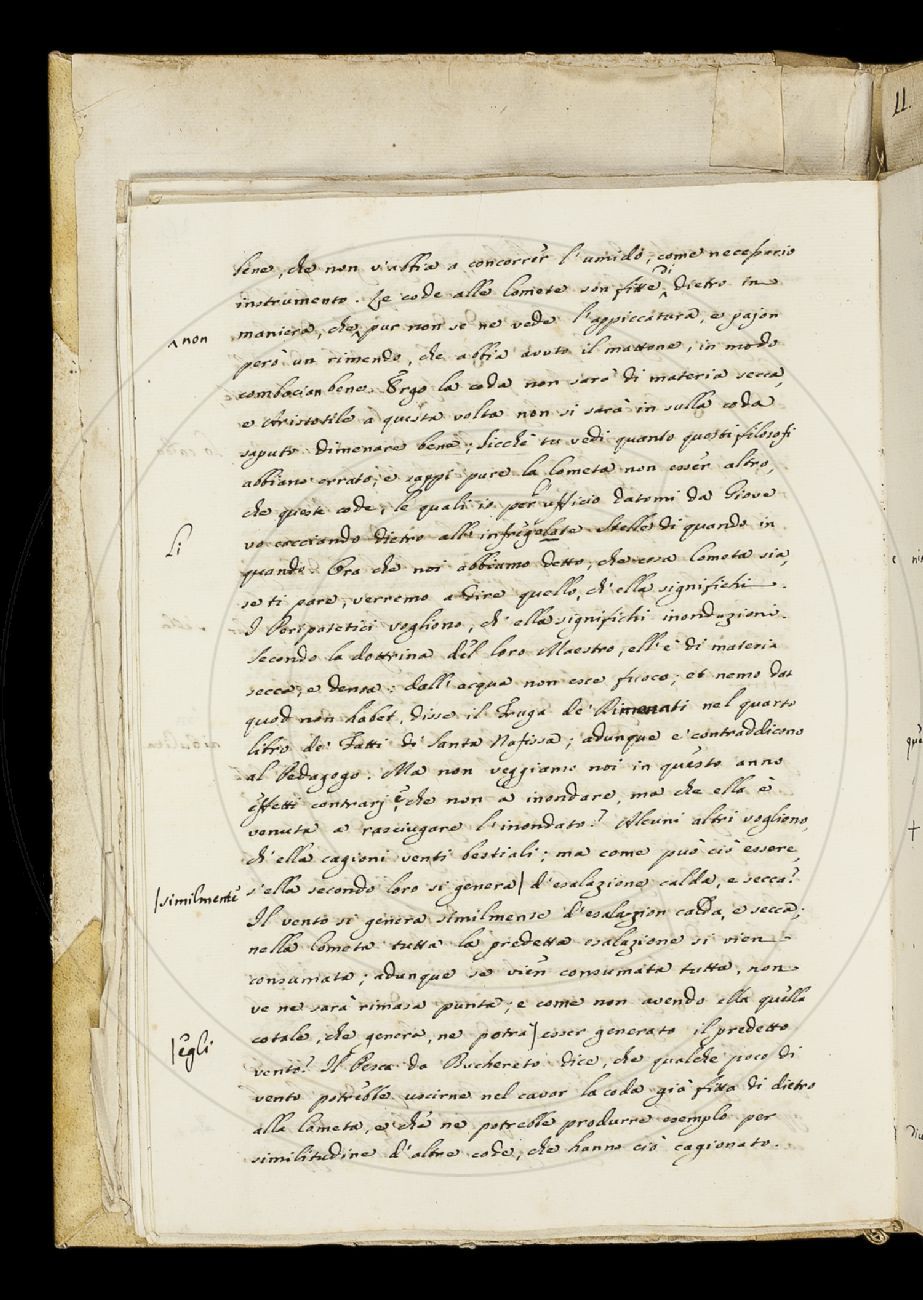 11.
bene, che non v'abbia a concorrer l'umido, come necessario
instrumento. Le code alle Comete son fitte di dietro in
maniera, che pur non se ne vede l'appiccatura, e pajon
^ non
però un rimendo, che abbia avuto il mattone, in modo
combocian bene. Ergo la coda non sarà di materia secca,
e Aristotile a questa volta non si sarà in sulla coda
saputo dimenare bene; sicchè tu vedi quanto questi filosofi
abbiano errato; e sappi pure la Cometa non esser altro,
che queste code, le quali io per ufficio datomi da Giove
vo cacciando dietro all' infrigolate Stelle di quando in
li
quando. Ora che noi abbiamo detto, che cosa Cometa sia,
se ti pare, verremo a dire quello, ch'ella significhi.
I Peripatetici vogliono, ch'ella significhi inondazioni.
Secondo la dottrina del loro Maestro, ell' è di materia
secca, e densa: dall' acqua non esce fuoco; et nemo dat
quod non habet, disse il Fruga de' Rimenati nel quarto
libro de' Fatti di Santa Nafissa; adunque e' contraddicono
al Pedagogo. Ma non veggiamo noi in questo anno
effetti contrarj, e che non a inondare, ma che ella è
venuta a rasciugare l'inondato? Alcuni altri vogliono,
ch'ella cagioni venti bestiali; ma come può ciò essere,
|similmente s'ella secondo loro si genera| d'esalazione calda, e secca?
Il vento si genera similmense d'esalazion calda, e secca;
nella Cometa tutta la predetta esalazione si vien
consumata; adunque se vien consumata tutta, non
ve ne sarà rimasa punta; e come non avendo ella quella
cotale, che genera, ne potrà| esser generato il predetto
|egli
vento? Il Pesca da Buchereto dice, che qualche poco di
vento potrebbe uscirne nel cavar la coda già fitta di dietro
alla Cometa, e che ne potrebbe produrre esemplo per
similitudine d'altre code, che hanno ciò cagionato.